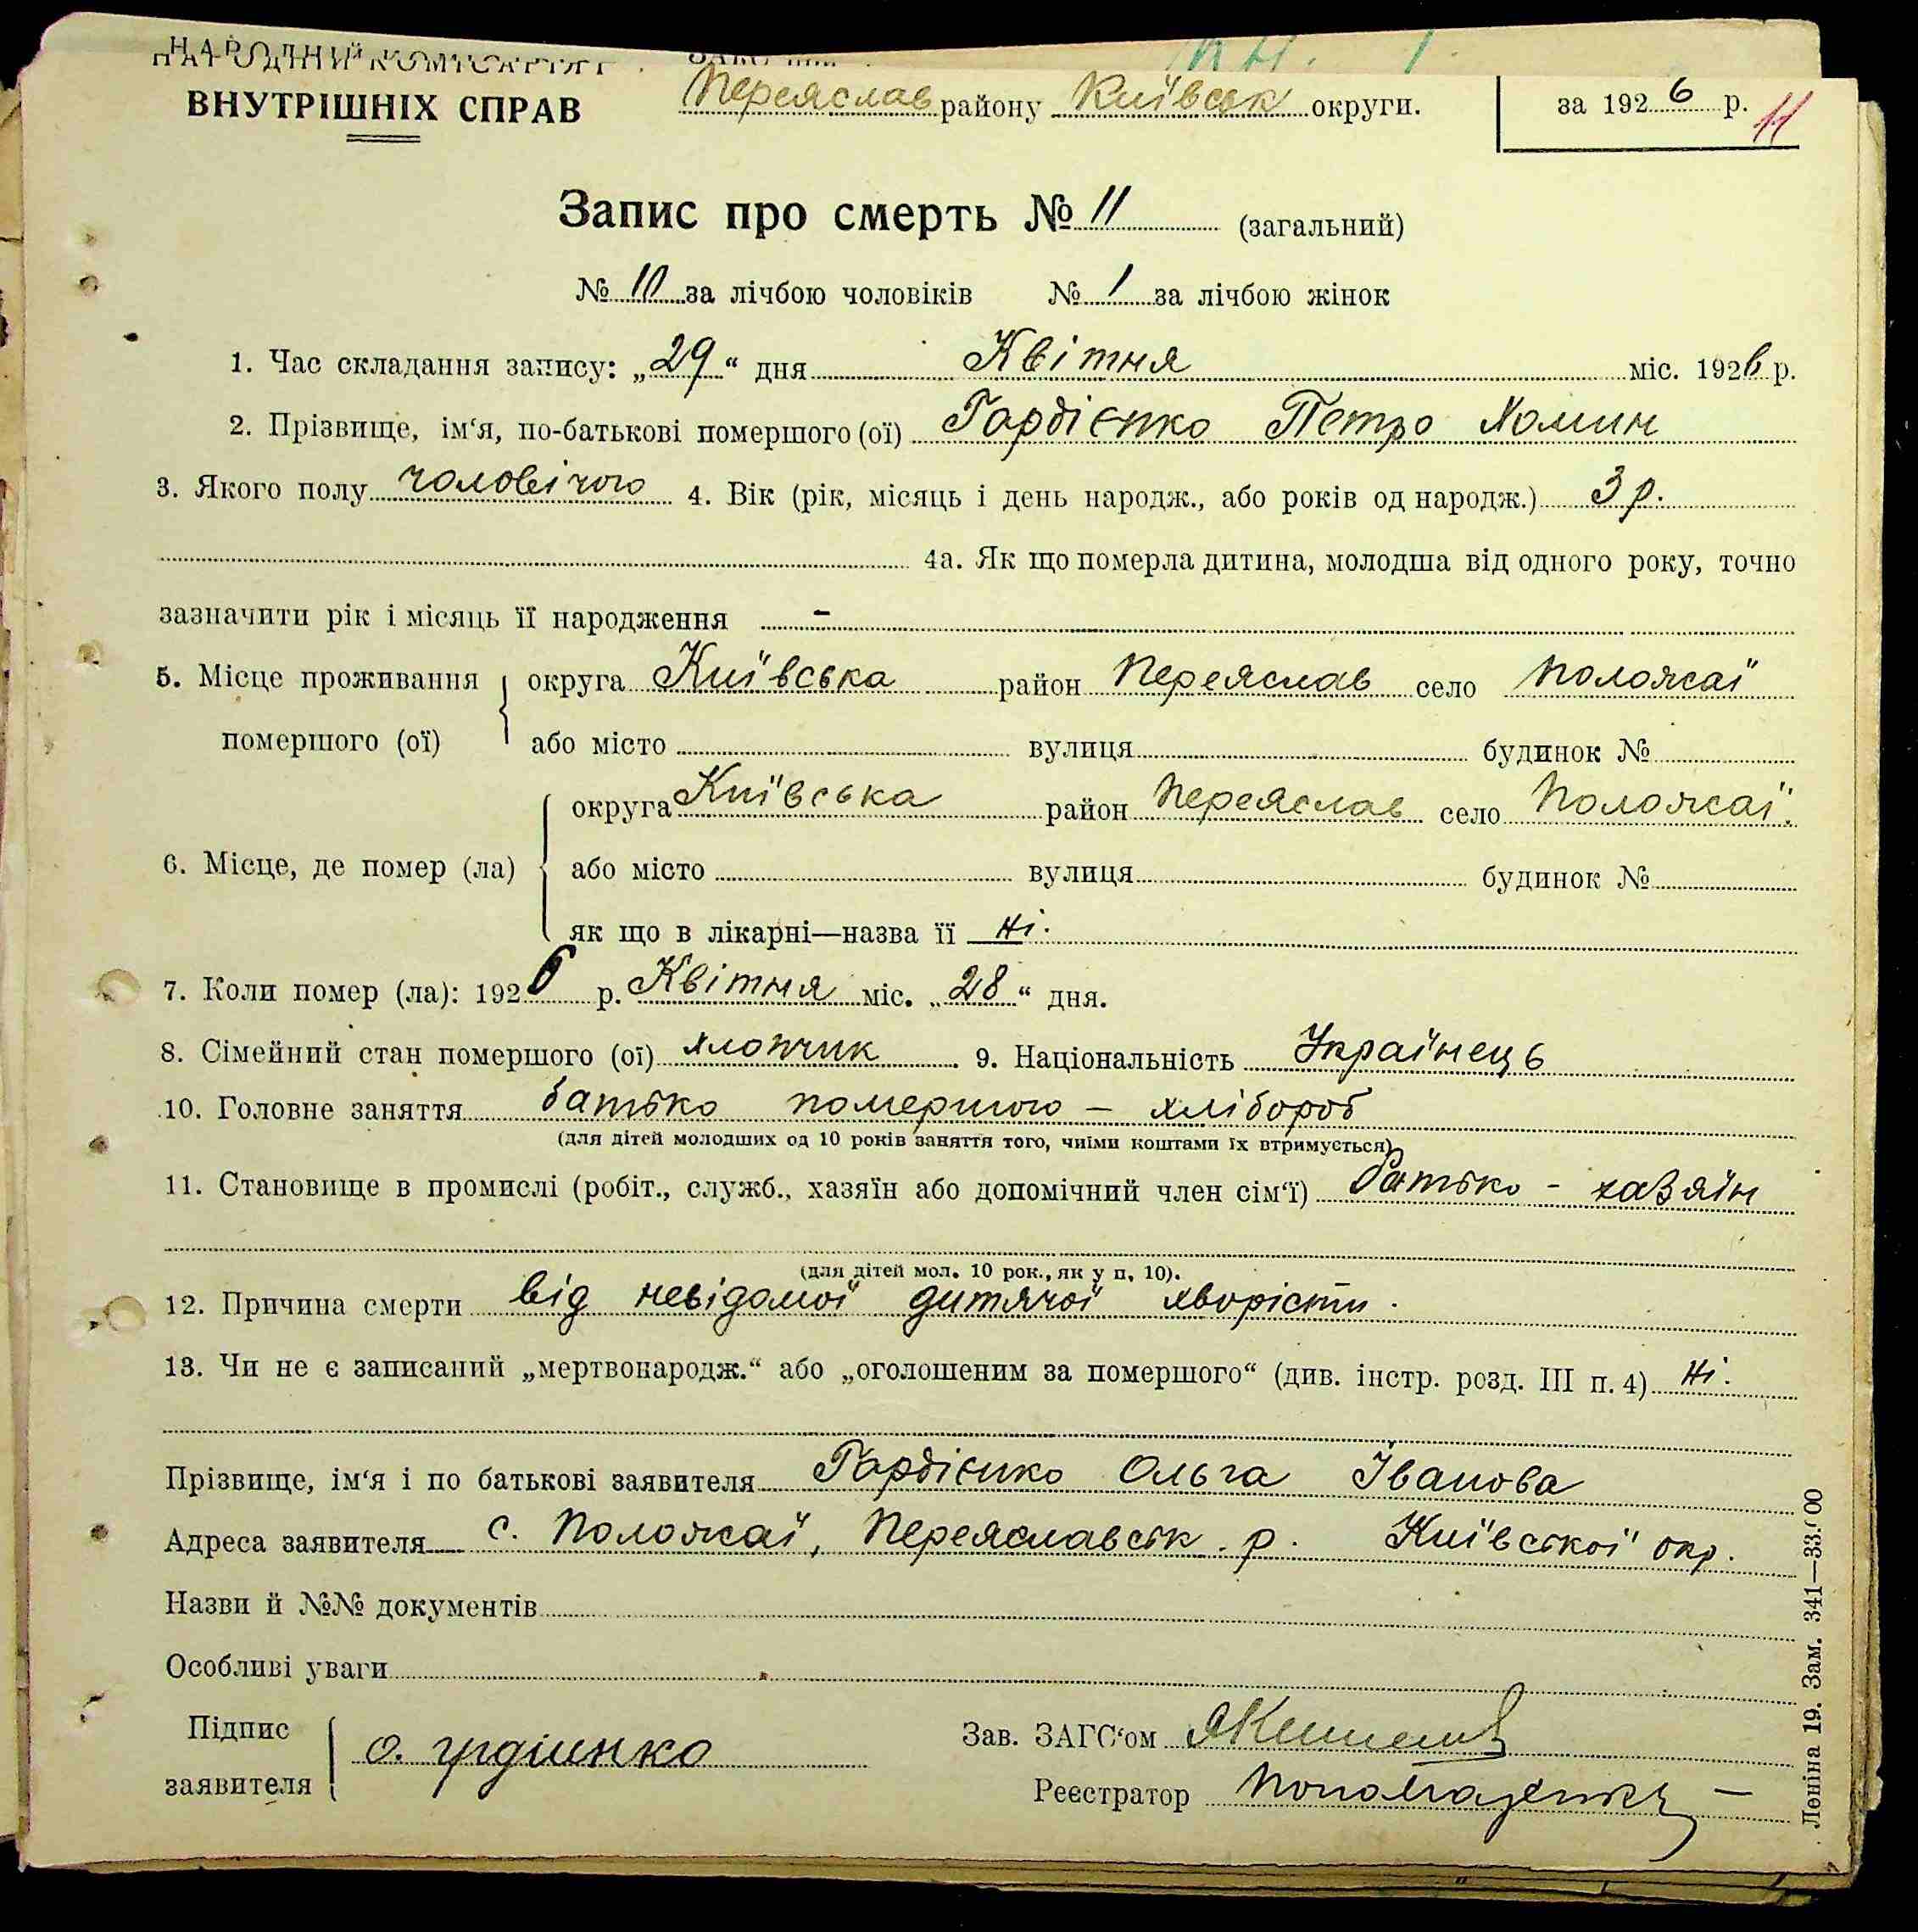 НАРОДНИЙ КОМІСАРІЯТ
ВНУТРІШНІХ СПРАВ
Переяслав району Київськ округи.
за 1926 р.
11
Запис про смерть № 11 (загальний)
№ 10 за лічбою чоловіків № 1 за лічбою жінок
1. Час складання запису: „29“ дня Квітня міс. 1926 р.
2. Прізвище, ім‘я, по-батькові помершого (ої) Гордієнко Петро Хомин
3. Якого полу чоловічого 4. Вік (рік, місяць і день народж., або років од народж.) 3 р.
4а. Як що померла дитина, молодша від одного року, точно
зазначити рік і місяць її народження -
5. Місце проживання помершого (ої) округа Київська район Переяслав село Положаї
або місто вулиця будинок №
6. Місце, де помер (ла) округа Київська район Переяслав село Положаї.
або місто вулиця будинок №
як що в лікарні—назва її Ні.
7. Коли помер (ла): 1926 р. Квітня міс. „28“ дня.
8. Сімейний стан помершого (ої) хлопчик 9. Національність Українець
10. Головне заняття батько помершого – хлібороб
(для дітей молодших од 10 років заняття того, чиїми коштами їх втримується)
11. Становище в промислі (робіт., служб., хазяїн або допомічний член сім‘ї) Батько - хазяїн
(для дітей мол. 10 рок., як у п. 10).
12. Причина смерти від невідомої дитячої хворісти.
13. Чи не є записаний „мертвонародж.“ або „оголошеним за помершого“ (див. інстр. розд. III п. 4) Ні.
Прізвище, ім‘я і по батькові заявителя Гордієнко Ольга Іванова
Адреса заявителя с. Положаї, Переяславськ. р. Київської окр.
Назви й №№ документів
Особливі уваги
Підпис заявителя
Зав. ЗАГС‘ом
Реєстратор
Леніна 19. Зам. 341—33.000